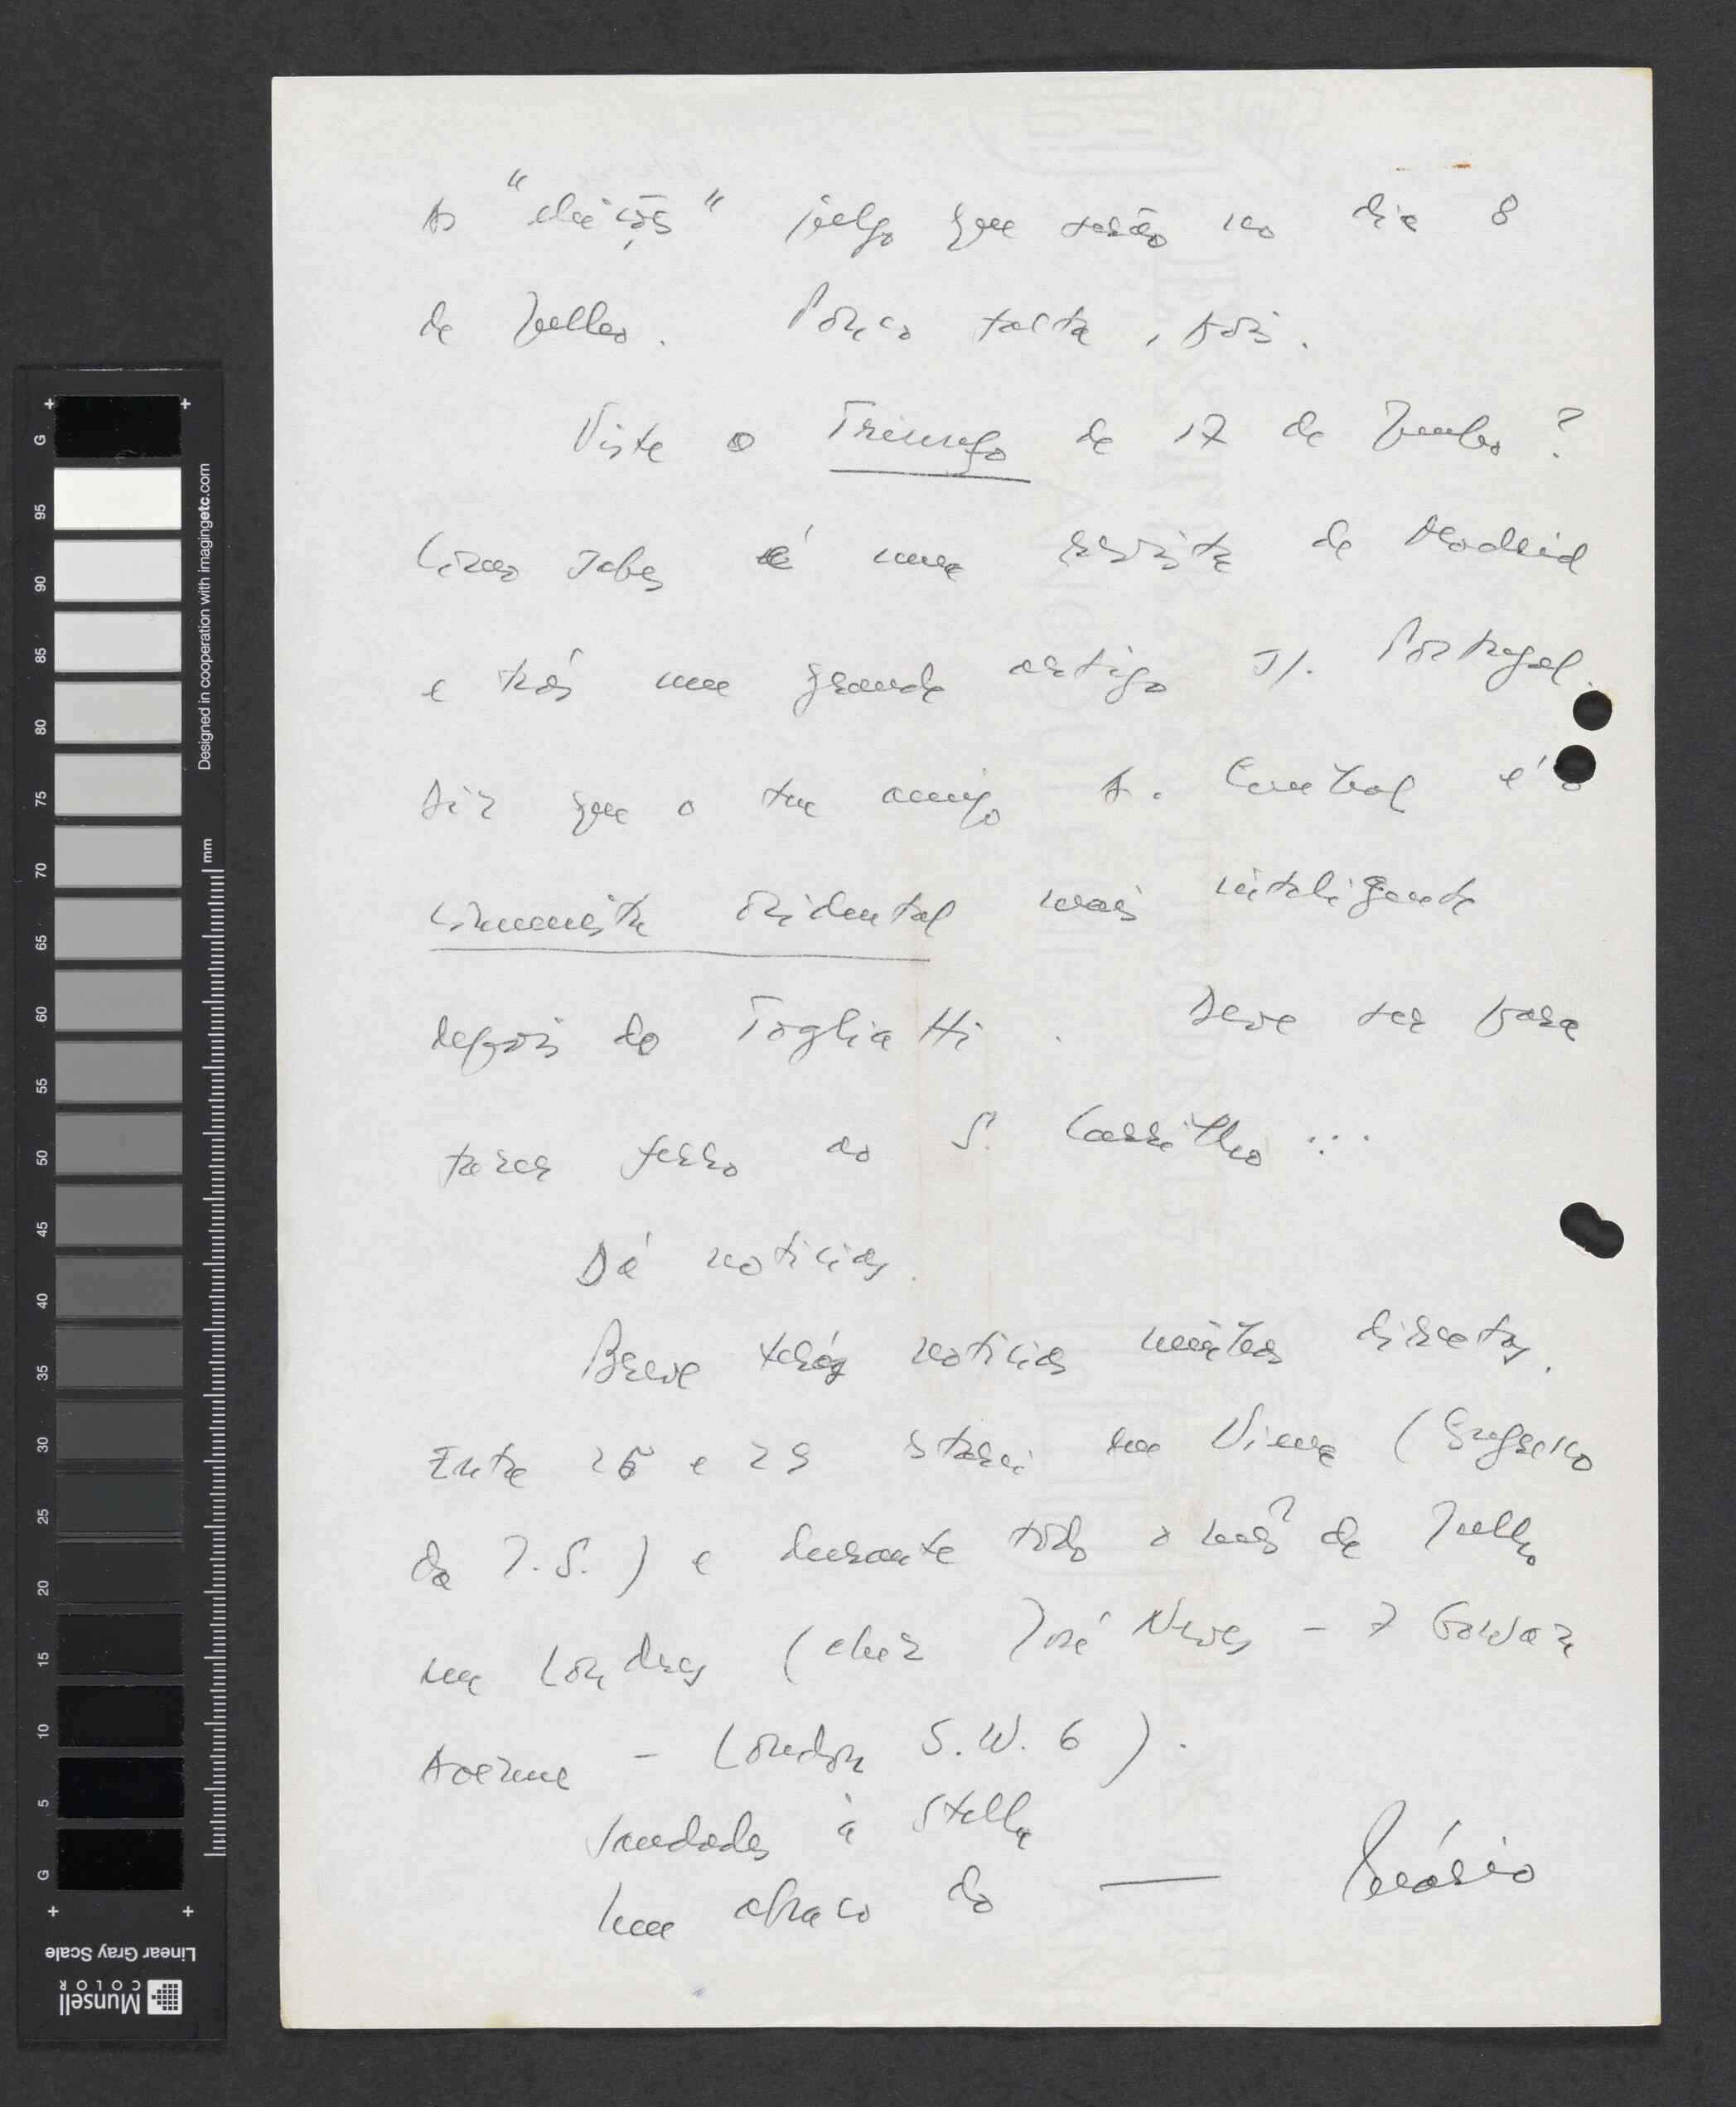 As "eleições" julgo que serão no dia 8
de Julho. Pouco falta, pois.
Viste o Triunfo de 17 de Junho?
Como sabes é uma revista de Madrid
e trás um grande artigo s/. Portugal.
Diz que o teu amigo A. Cunhal é o
comunista ocidental mais inteligente
depois do Togliatti. Deve ser para
fazer ferro ao S. Carrilho...
Dá notícias.
Breve terás notícias minhas directas.
Entre 26 e 29 estarei em Viena (Congresso
da I.S.) e durante todo o mês de Julho
em Londres (chez José Neves - 7 Gowan
Avenue - London S.W. 6).
Saudades à Stella
Um abraço do — Mário
G
95
90
85
80
75
70
65
60
55
50
45
40
35
30
25
20
15
10
5
G
mm
Designed in cooperation with imagingetc.com
Linear Gray Scale
Munsell
COLOR